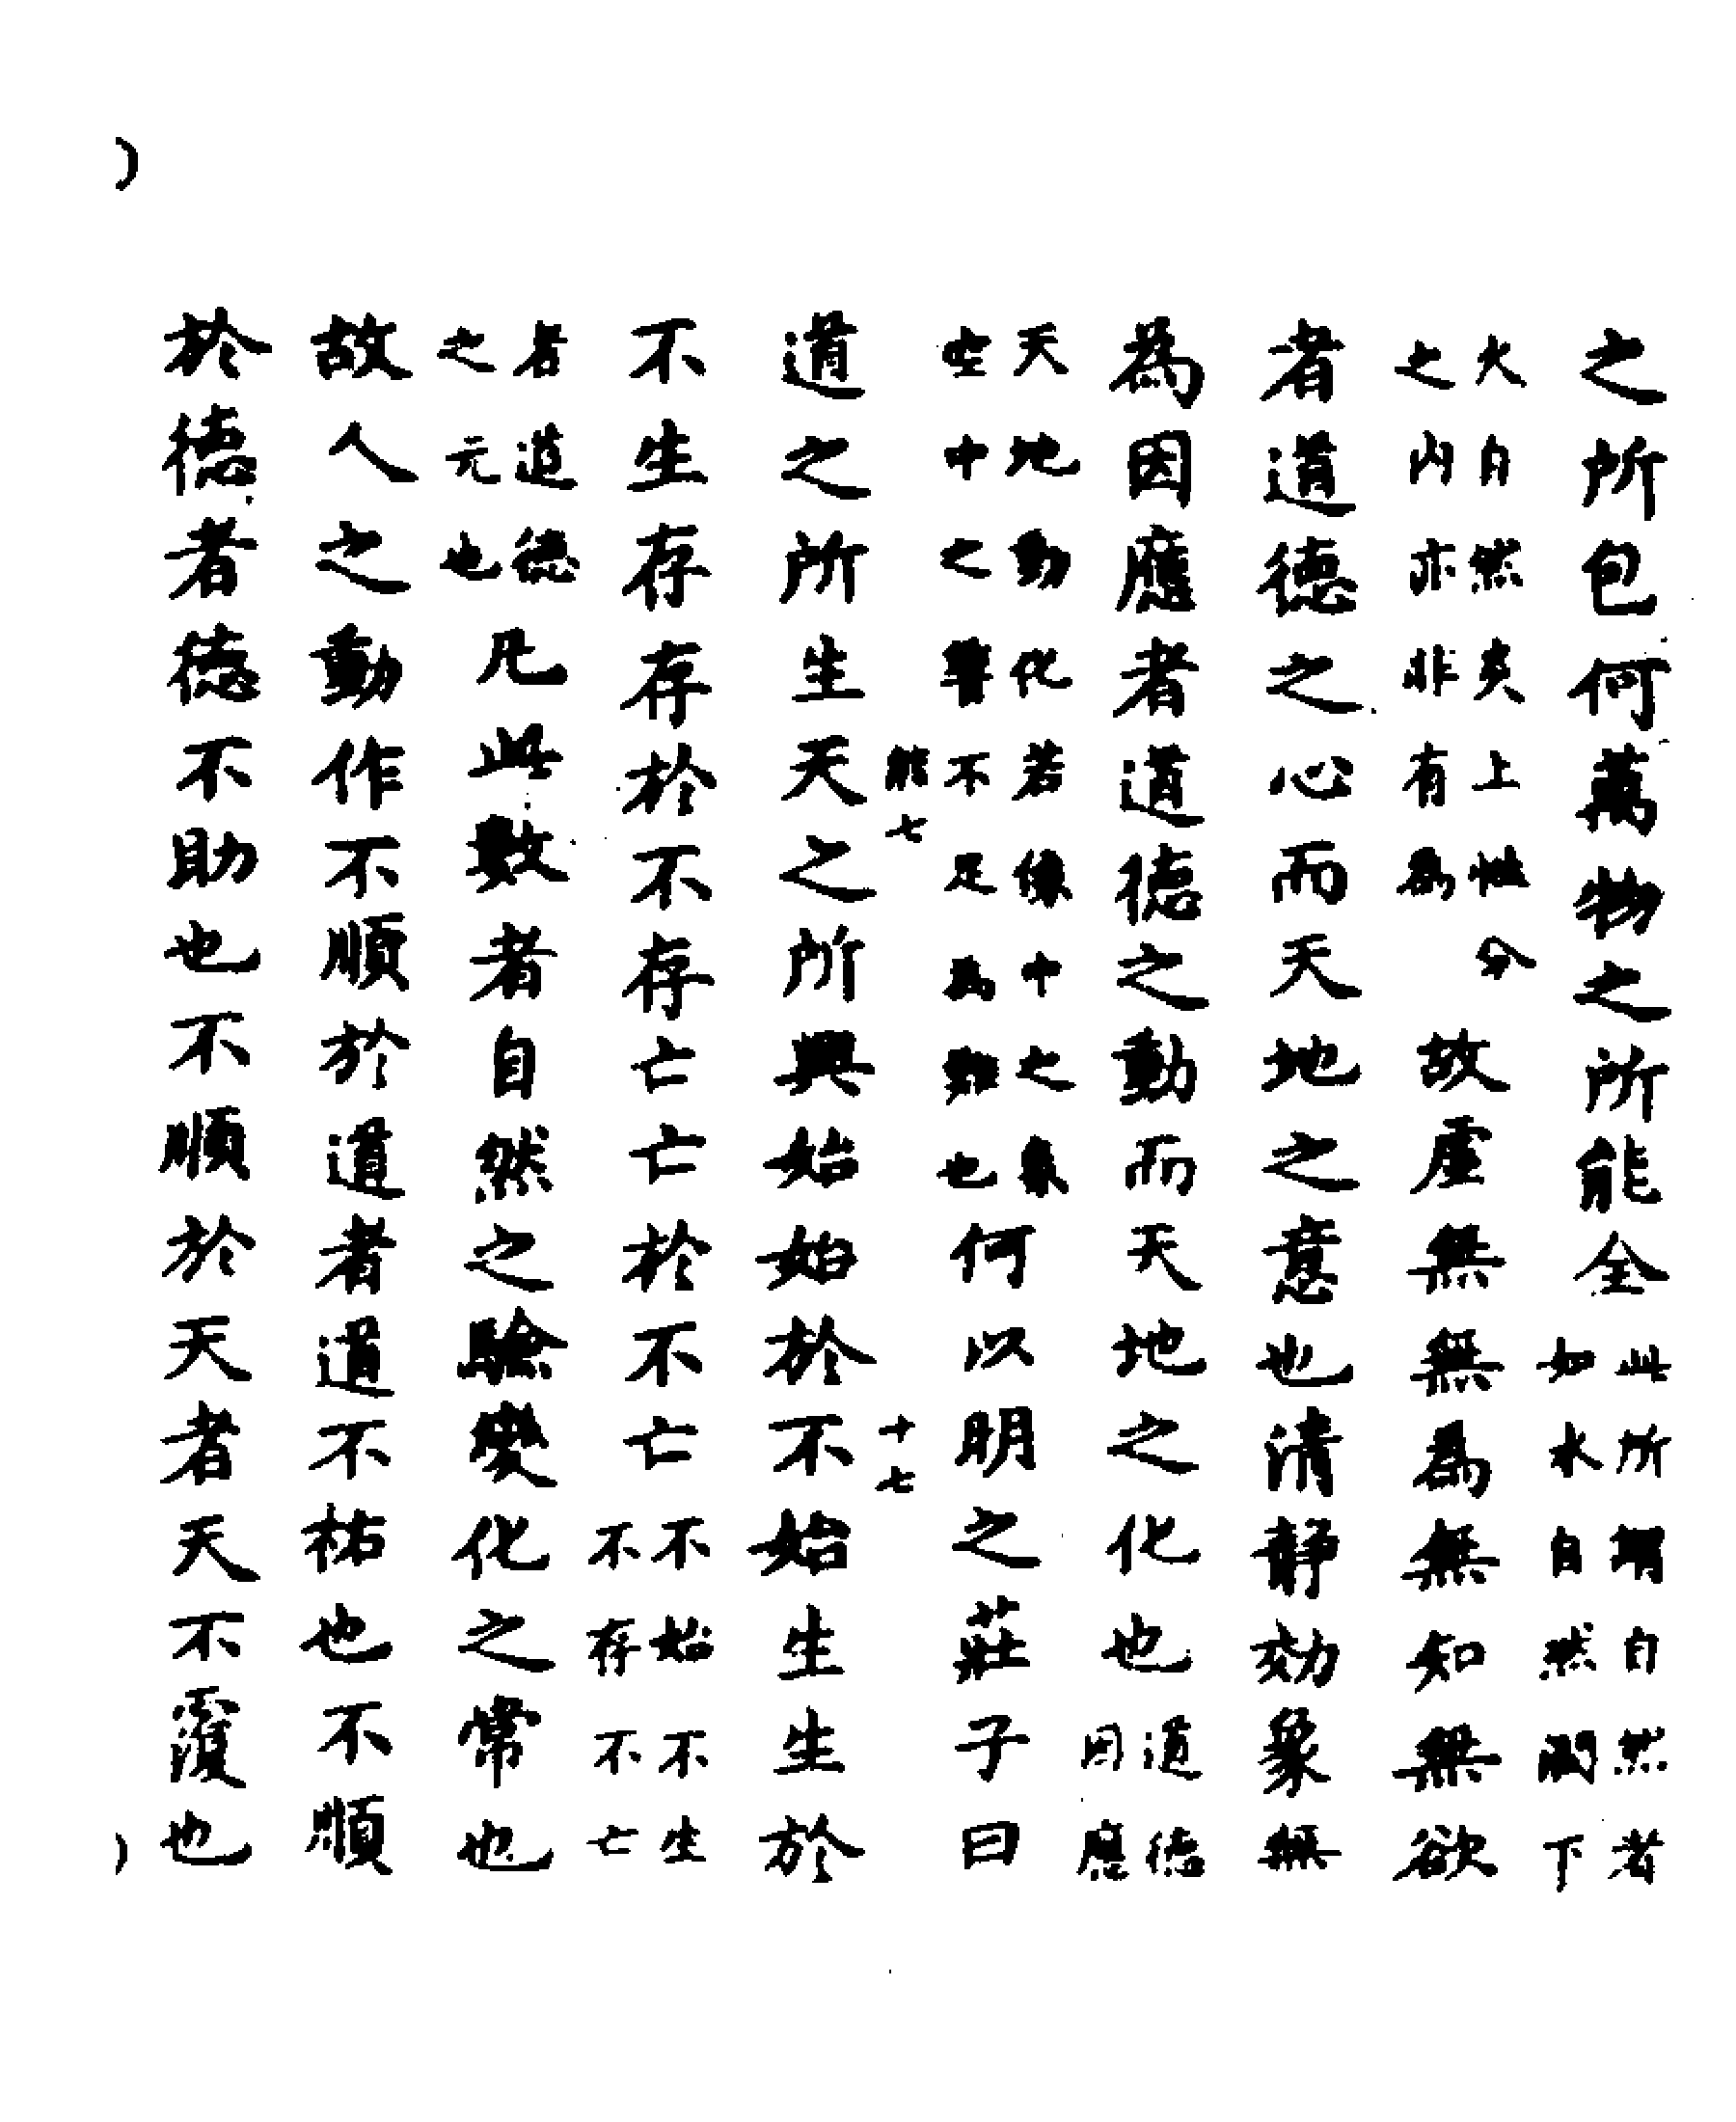 之所包何萬物之所能全此所謂自然者如水自然潤下
火自然炎上性分之内亦非有為故虛無無為無知無欲
者道德之心而天地之意也清静効象無
為因應者道德之動而天地之化也道德因應
天地動化若像中之象空中之響不足為難也何以明之莊子曰
能七
十七
道之所生天之所興始始於不始生生於
不生存存於不存亡亡於不亡不始不生不存不亡
者道德之元也凡此數者自然之驗變化之常也
故人之動作不順於道者道不祐也不順
於德者德不助也不順於天者天不覆也